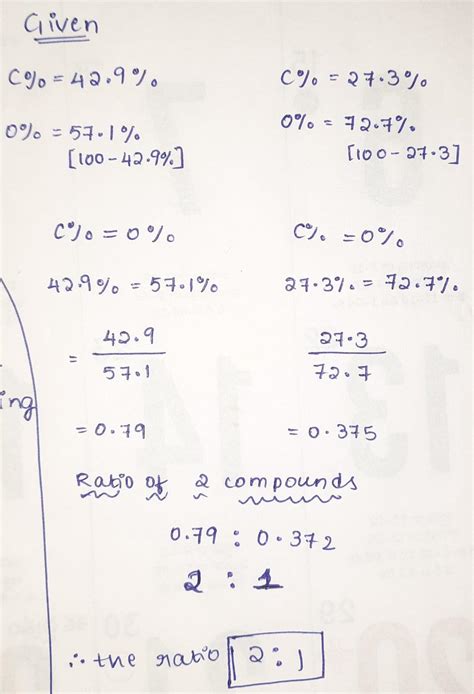 Given
C% = 42.9% C% = 27.3%
O% = 57.1% O% = 72.7%
[100-42.9%] [100-27.3]
C% = 0% C% = 0%
42.9% = 57.1% 27.3% = 72.7%
= 42.9/57.1 27.3/72.7
ing
= 0.79 = 0.375
Ratio of 2 compounds
0.79 : 0.372
2 : 1
∴ the ratio 2:1